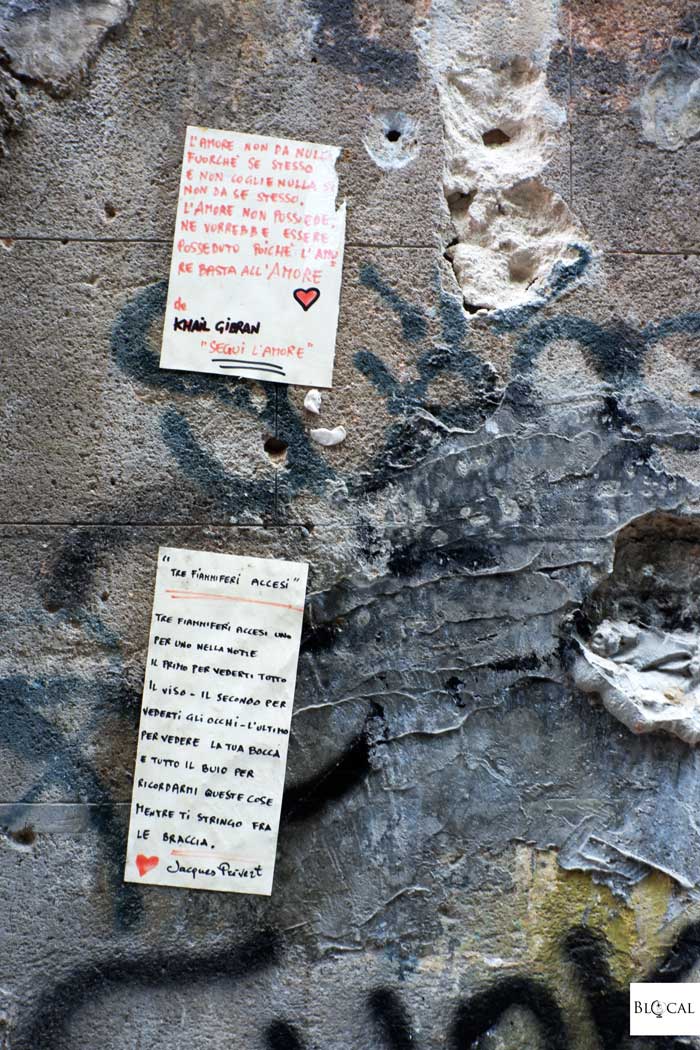 L'AMORE NON DA NULLA
FUORCHÉ SE STESSO
E NON COGLIE NULLA SE
NON DA SE STESSO.
L'AMORE NON POSSIEDE,
NE VORREBBE ESSERE
POSSEDUTO POICHÉ L'AMO
RE BASTA ALL'AMORE"
de
KHAIL GIBRAN
"SEGUI L'AMORE"
"TRE FIAMMIFERI ACCESI"
TRE FIAMMIFERI ACCESI UNO
PER UNO NELLA NOTTE
IL PRIMO PER VEDERTI TUTTO
IL VISO - IL SECONDO PER
VEDERTI GLI OCCHI - L'ULTIMO
PER VEDERE LA TUA BOCCA
E TUTTO IL BUIO PER
RICORDARMI QUESTE COSE
MENTRE TI STRINGO FRA
LE BRACCIA.
Jacques Prévert
BLOCAL